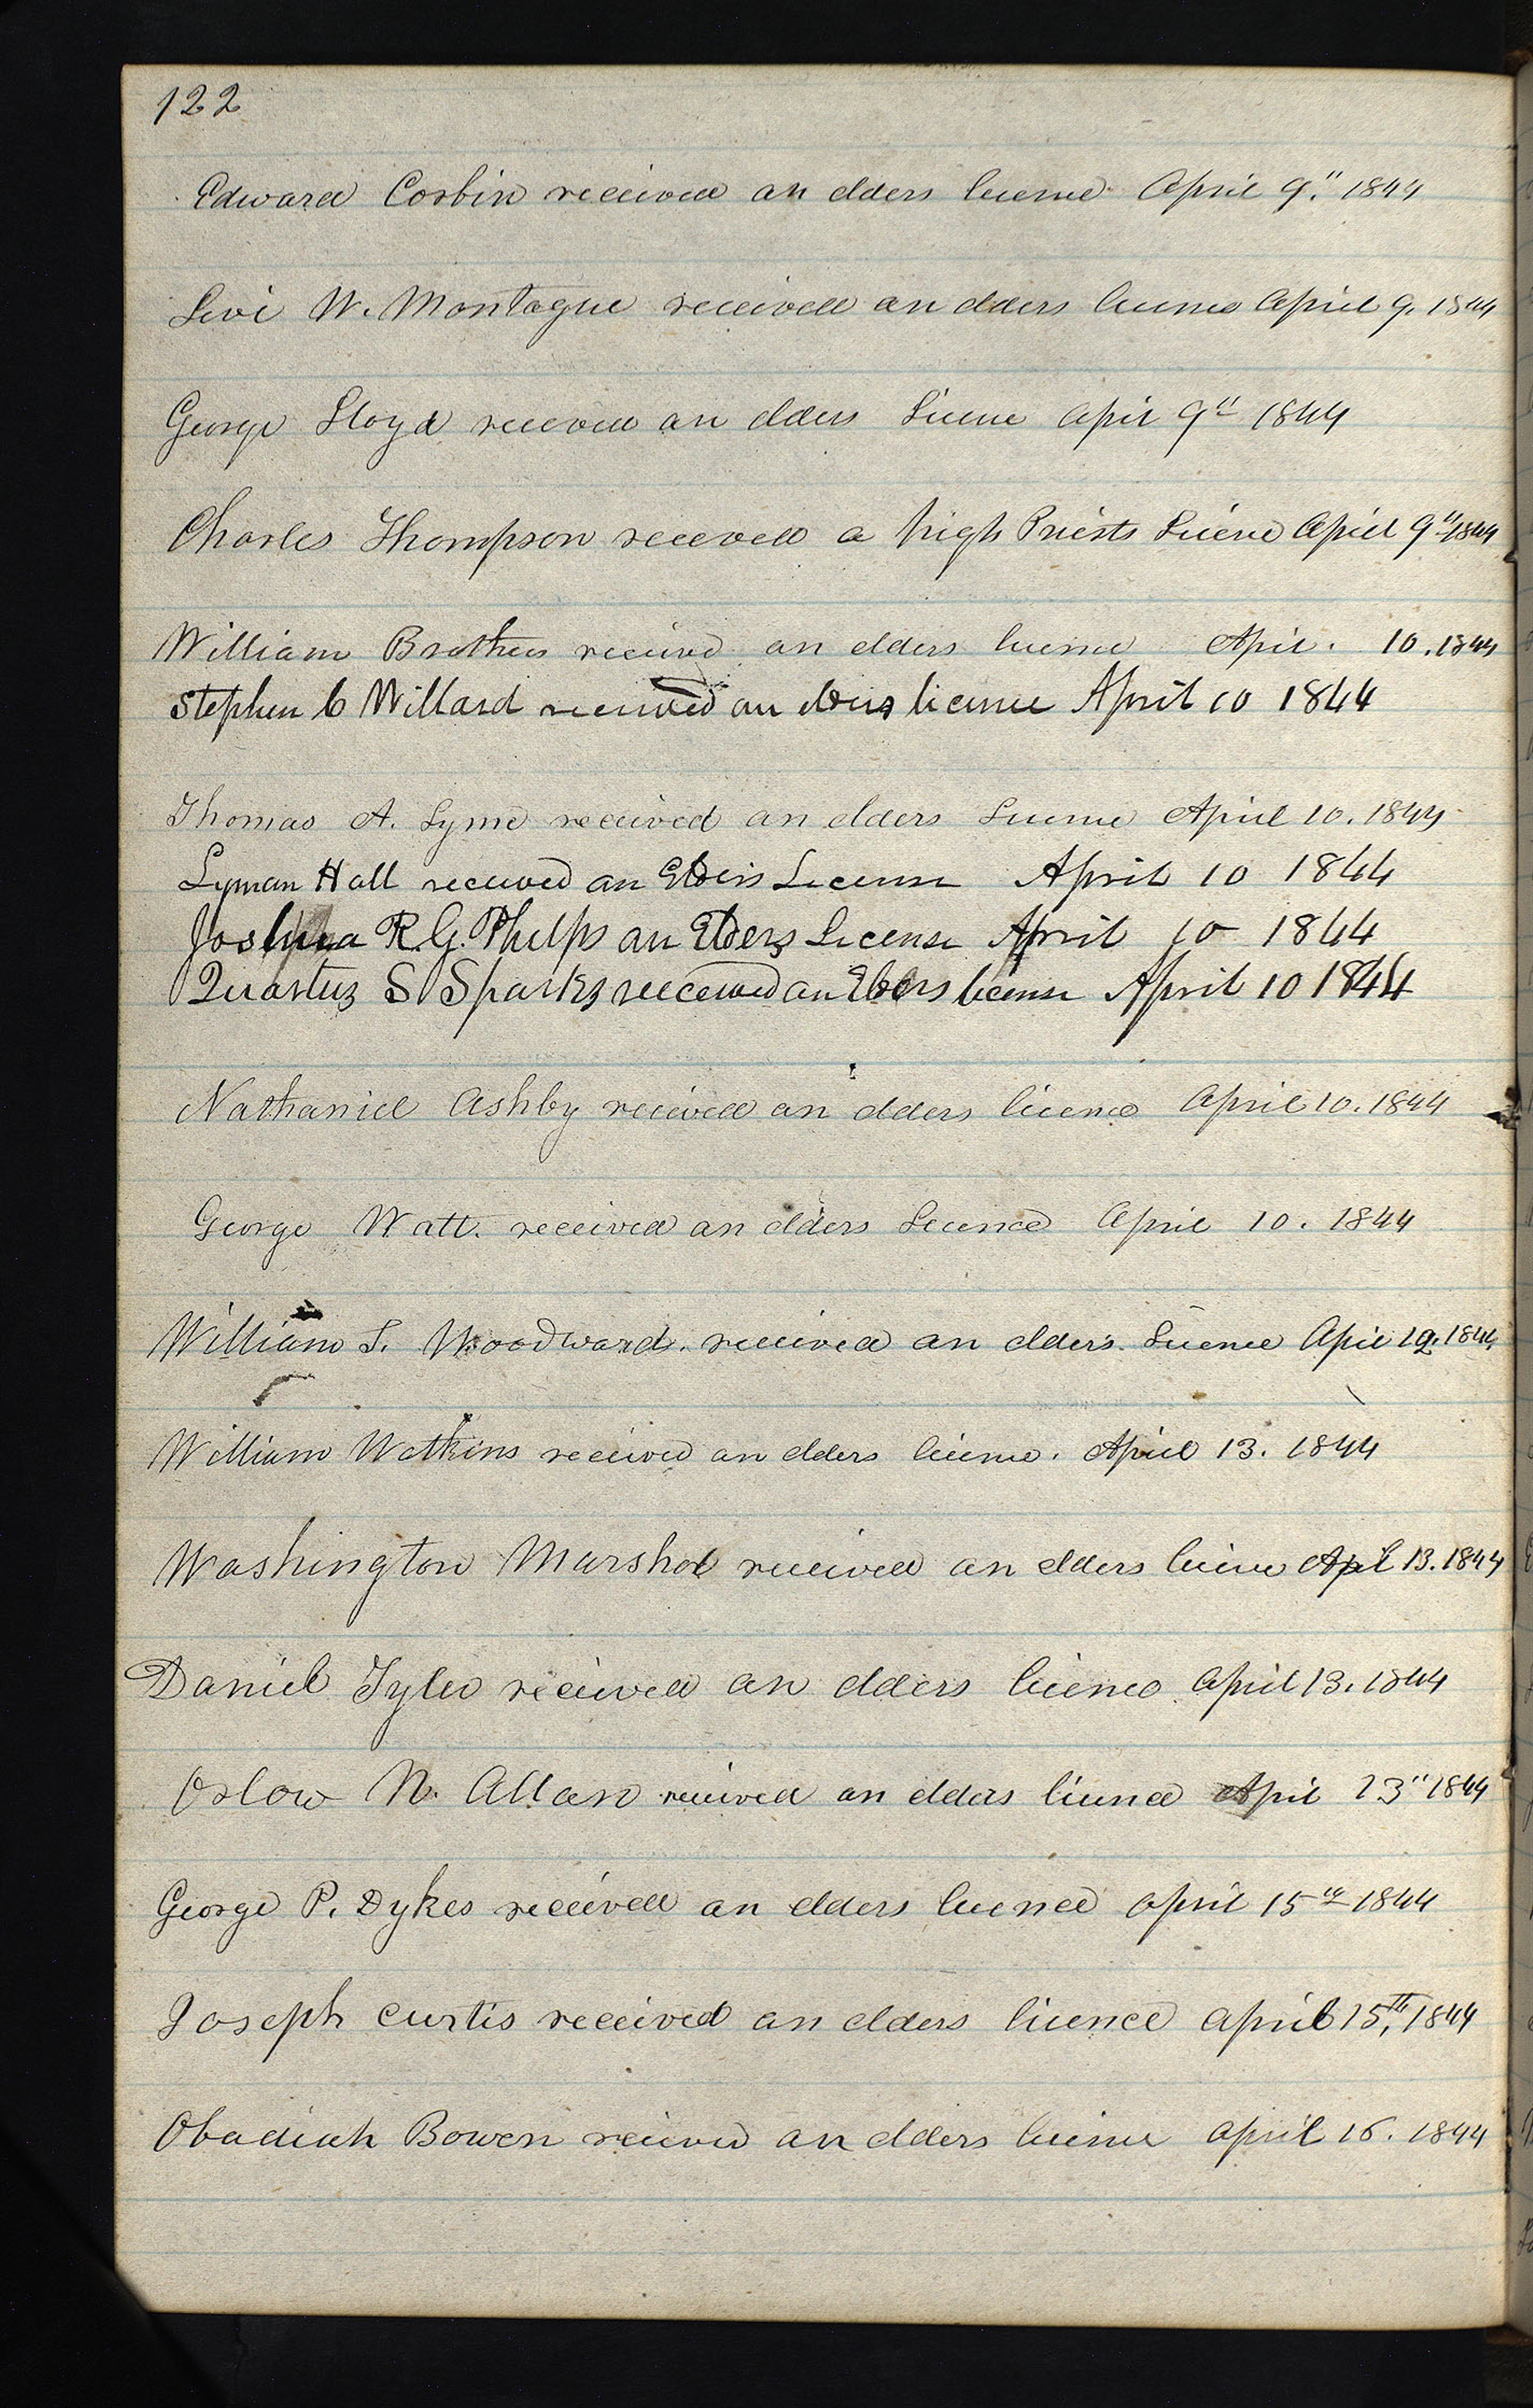 122
Edward Corbin received an elders licence April 9." 1844
Levi W. Montague received an elders licence April 9. 1844
George Lloyd received an elders Licence April 9th 1844
Charles Thompson received a high Priests Licence April 9th 1844
William Brothers received an elders licence April. 10. 1844
Stephen C Willard received an elders licence April 10 1844
Thomas A. Lyme received an elders Licence April 10. 1844
Lyman Hall received an Elders License April 10 1844
Joshua R. G. Phelps an Elders License April 10 1844
Quartus S Sparks received an Elders license April 10 1844
Nathaniel Ashby received an elders licence April 10. 1844
George Watt. received an elders Licence April 10. 1844
William S. Woodward. received an elder's. Licence April 12. 1844
William Watkins received an elders licence. April 13. 1844
Washington Marshal received an elders licence Apil 13. 1844
Daniel Tyler received an elders licence April 13. 1844
Oslow N. Allan received an elders licence April 13" 1844
George P. Dykes received an elders licence April 15th 1844
Joseph Curtis received an elders licence April 15th, 1844
Obadiah Bowen received an elders licence April 16. 1844